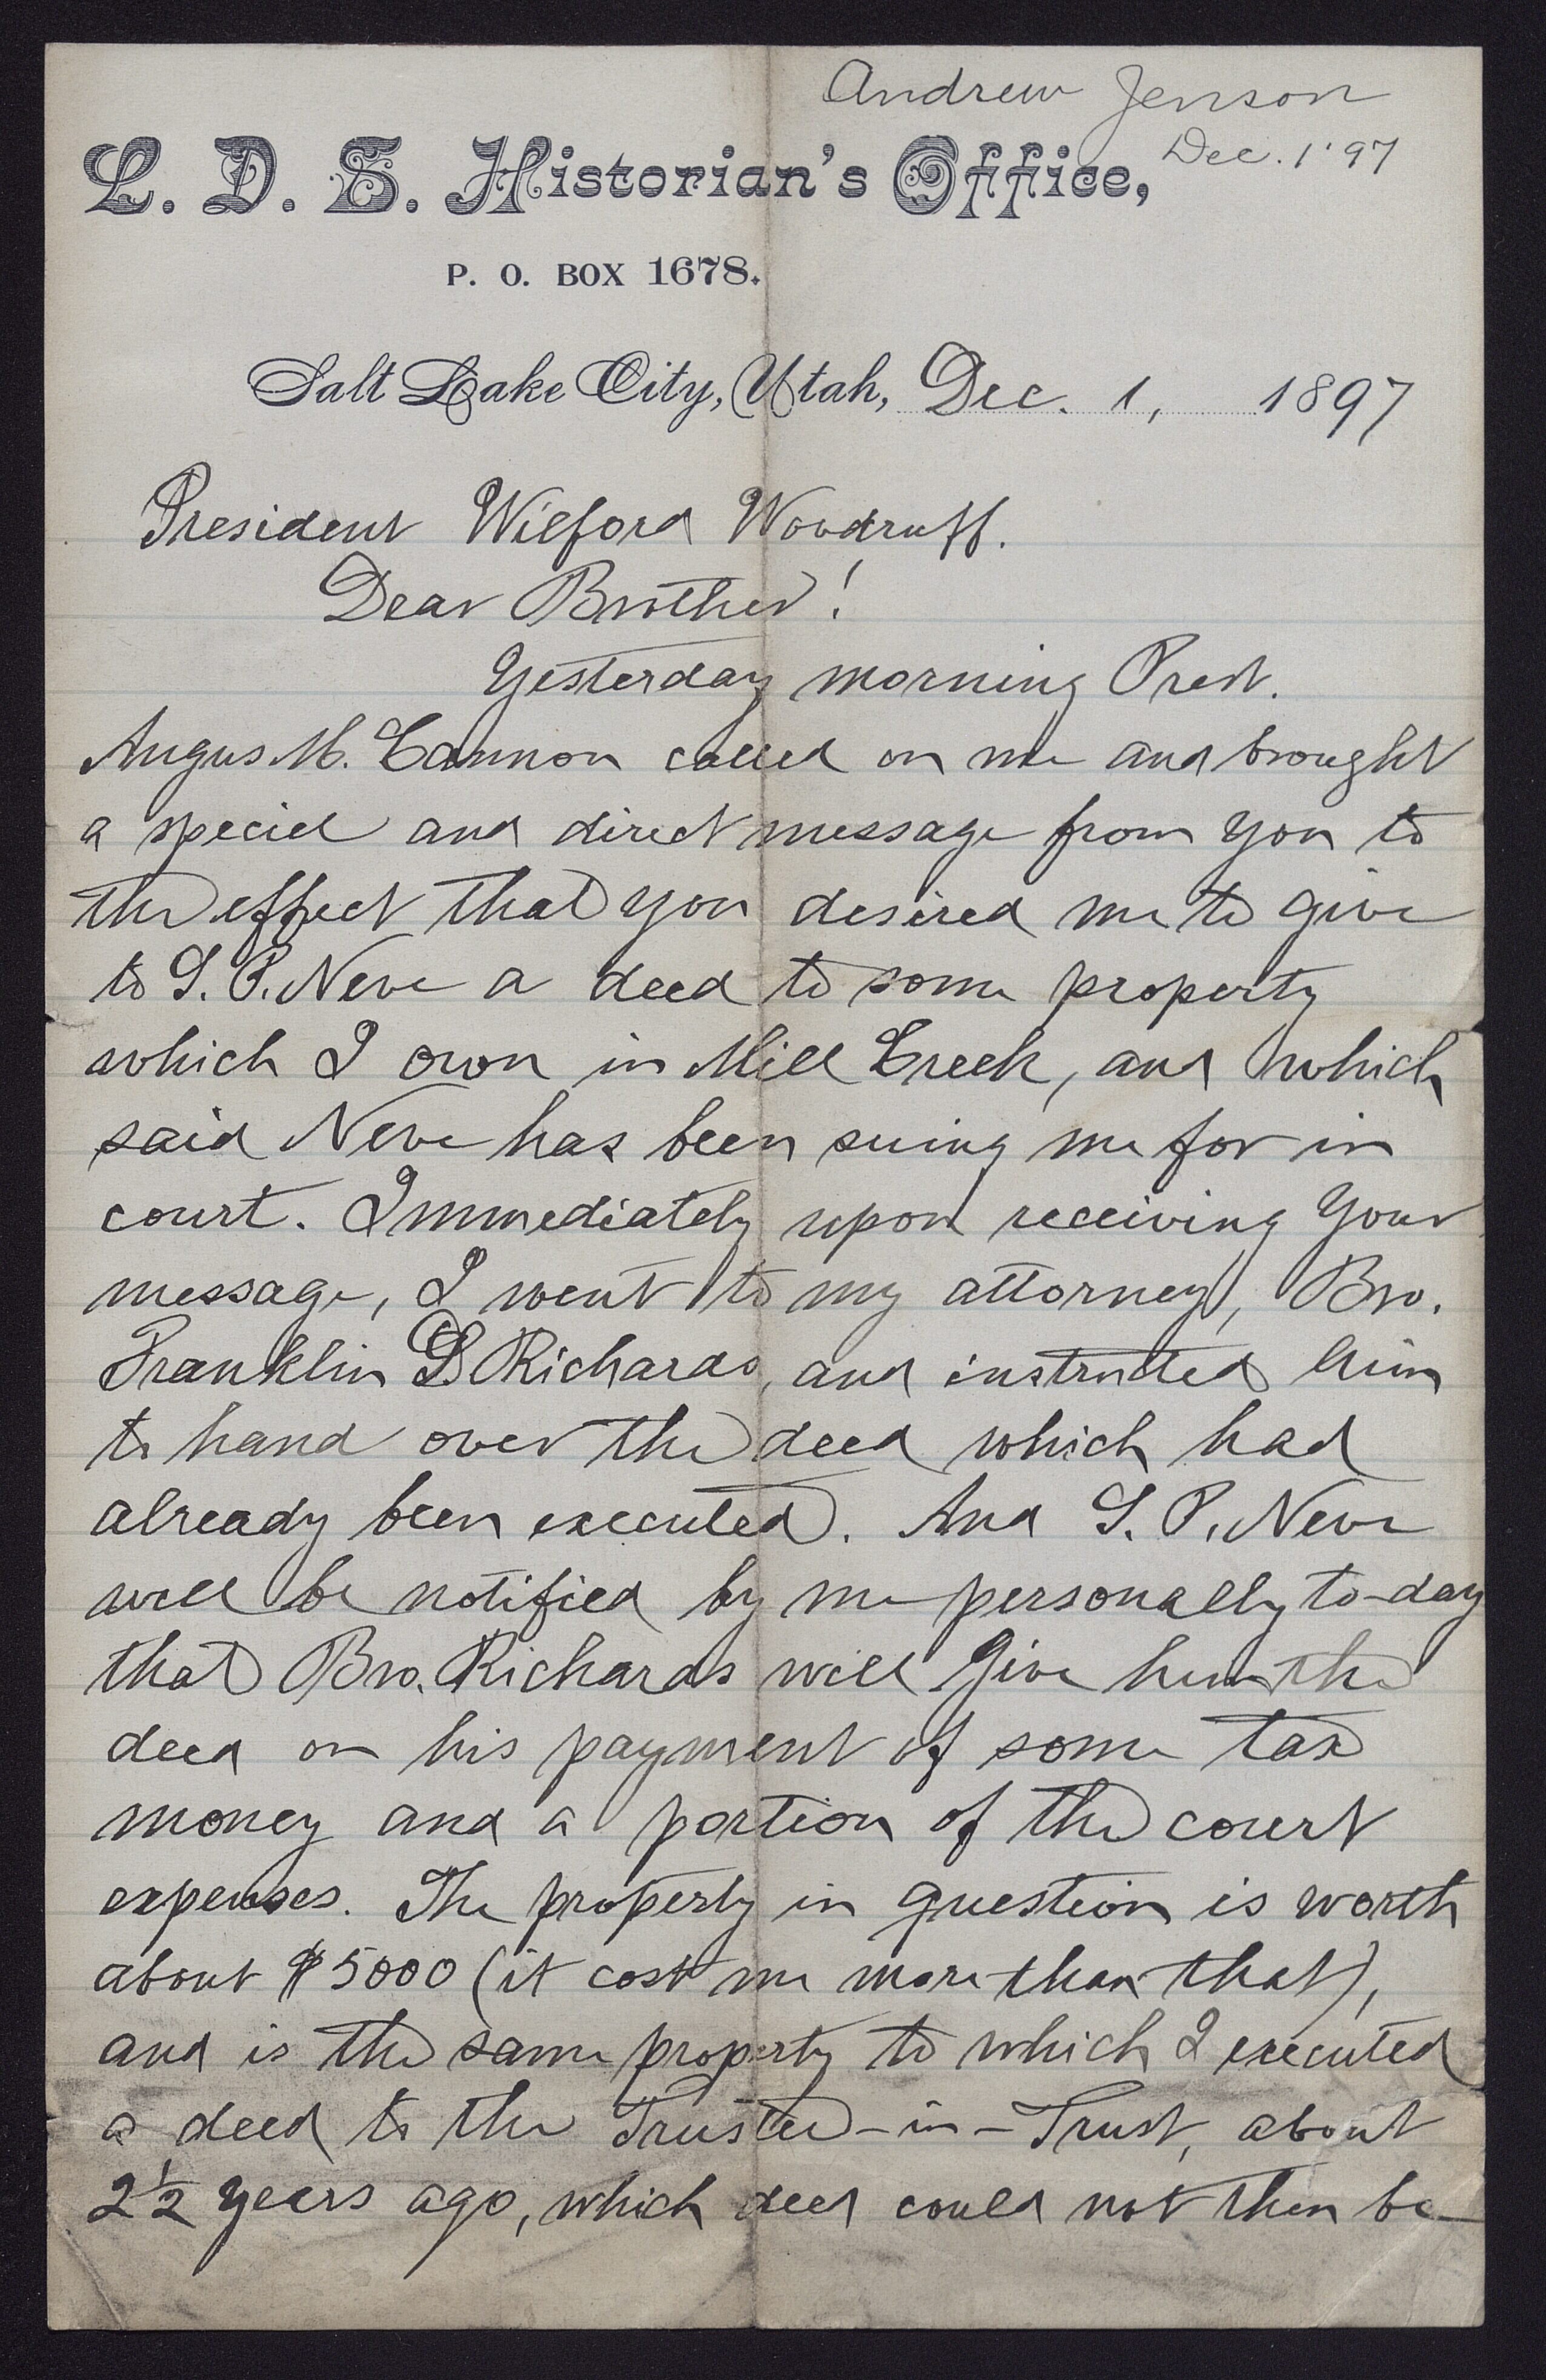 Andrew Jenson
Dec. 1 '97
L. D. S. Historian's Office,
P. O. BOX 1678.
Salt Lake City, Utah, Dec. 1, 1897
President Wilford Woodruff.
Dear Brother!
Yesterday morning Prest.
Angus M. Cannon called on me and brought
a speciel and direct message from you to
the effect that you desired me to give
to S. P. Neve a deed to some property
which I own in Mill Creek, and which
said Neve has been suing me for in
court. Immediately upon receiving your
message, I went to my attorney, Bro.
Franklin S. Richards, and instructed him
to hand over the deed which had
already been executed. And S. P. Neve
will be notified by me personally to-day
that Bro. Richards will give him the
deed on his payment of some tax
money and a portion of the court
expenses. The property in question is worth
about $5000 (it cost me more than that),
and is the same property to which I executed
a deed to the Trustee-in-Trust, about
2½ years ago, which deed could not then be